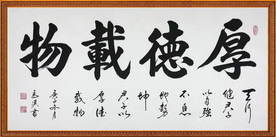 厚德載物
天行
健君子
以自強
不息
地勢
坤
君子以
厚德
載物
月
書